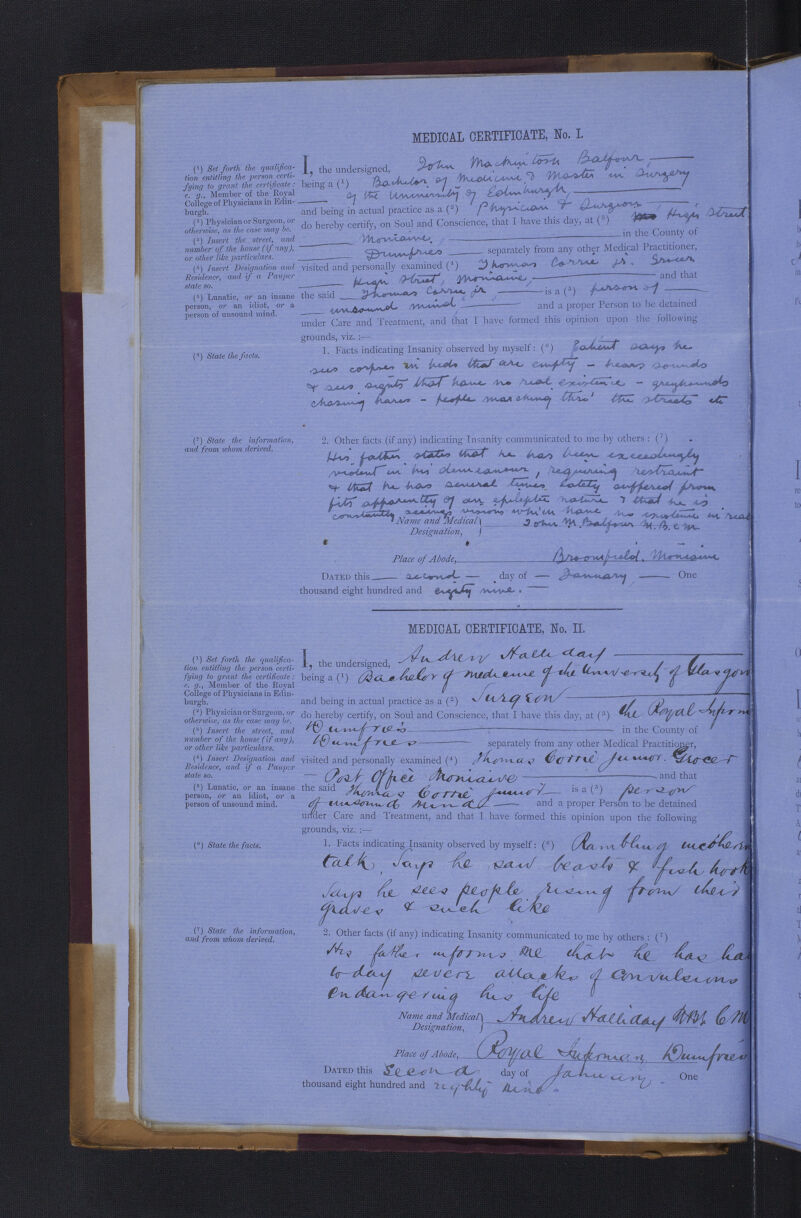 MEDICAL CERTIFICATE, No. I.
(¹) Set forth the qualifica-
tion entitling the person certi-
fying to grant the certificate:
e. g., Member of the Royal
College of Physicians in Edin-
burgh.
(²) Physician or Surgeon, or
otherwise, as the case may be.
(³) Insert the street, and
number of the house (if any),
or other like particulars.
(⁴) Insert Designation and
Residence, and if a Pauper
state so.
(⁵) Lunatic, or an insane
person, or an idiot, or a
person of unsound mind.
I, the undersigned, John Mackintosh Balfour,
being a (¹) Bachelor of Medicine & Master in Surgery
of the University of Edinburgh
and being in actual practice as a (²) Physician & Surgeon
do hereby certify, on Soul and Conscience, that I have this day, at (³) High Street
Moniaive, in the County of
Dumfries separately from any other Medical Practitioner,
visited and personally examined (⁴) Thomas Corrie jr. Grocer
High Street, Moniaive, and that
the said Thomas Corrie jr is a (⁵) person of
unsound mind, and a proper Person to be detained
under Care and Treatment, and that I have formed this opinion upon the following
grounds, viz. :—
(⁶) State the facts.
1. Facts indicating Insanity observed by myself: (⁶) Patient says he
sees corpses in beds that are empty - hears sounds
& sees sights that have no real existence - greyhounds
chasing hares - people marching thro' the streets etc
(⁷) State the information,
and from whom derived.
2. Other facts (if any) indicating Insanity communicated to me by others : (⁷)
His father states that he has been exceedingly
violent in his demeanour, requiring restraint
& that he has several times lately suffered from
fits apparently of an epileptic nature & that he is
constantly seeing visions which have no existence in real
Name and Medical Designation, John M. Balfour M.B.C.M
Place of Abode, Broomfield. Moniaive
DATED this second day of January One
thousand eight hundred and eighty nine.
MEDICAL CERTIFICATE, No. II.
(¹) Set forth the qualifica-
tion entitling the person certi-
fying to grant the certificate:
e. g., Member of the Royal
College of Physicians in Edin-
burgh.
(²) Physician or Surgeon, or
otherwise, as the case may be.
(³) Insert the street, and
number of the house (if any),
or other like particulars.
(⁴) Insert Designation and
Residence, and if a Pauper
state so.
(⁵) Lunatic, or an insane
person, or an idiot, or a
person of unsound mind.
I, the undersigned, Andrew Halliday
being a (¹) Bachelor of medicine of the University of Glasgow
and being in actual practice as a (²) Surgeon
do hereby certify, on Soul and Conscience, that I have this day, at (³) the Royal Infirm
Dumfries in the County of
Dumfries separately from any other Medical Practitioner,
visited and personally examined (⁴) Thomas Corrie junior. Grocer
Post Office Moniaive and that
the said Thomas Corrie junior is a (⁵) person
of unsound mind and a proper Person to be detained
under Care and Treatment, and that I have formed this opinion upon the following
grounds, viz. :—
(⁶) State the facts.
1. Facts indicating Insanity observed by myself: (⁶) Rambling incoheren
talk, says he saw beasts & fish hook
Says he sees people rising from their
graves & such like
(⁷) State the information,
and from whom derived.
2. Other facts (if any) indicating Insanity communicated to me by others : (⁷)
His father informs me that he has ha
to day severe attacks of convulsions
endangering his life
Name and Medical Designation, Andrew Halliday M.B. C.M
Place of Abode, Royal Infirmary Dumfries
DATED this Second day of January. One
thousand eight hundred and eighty nine.